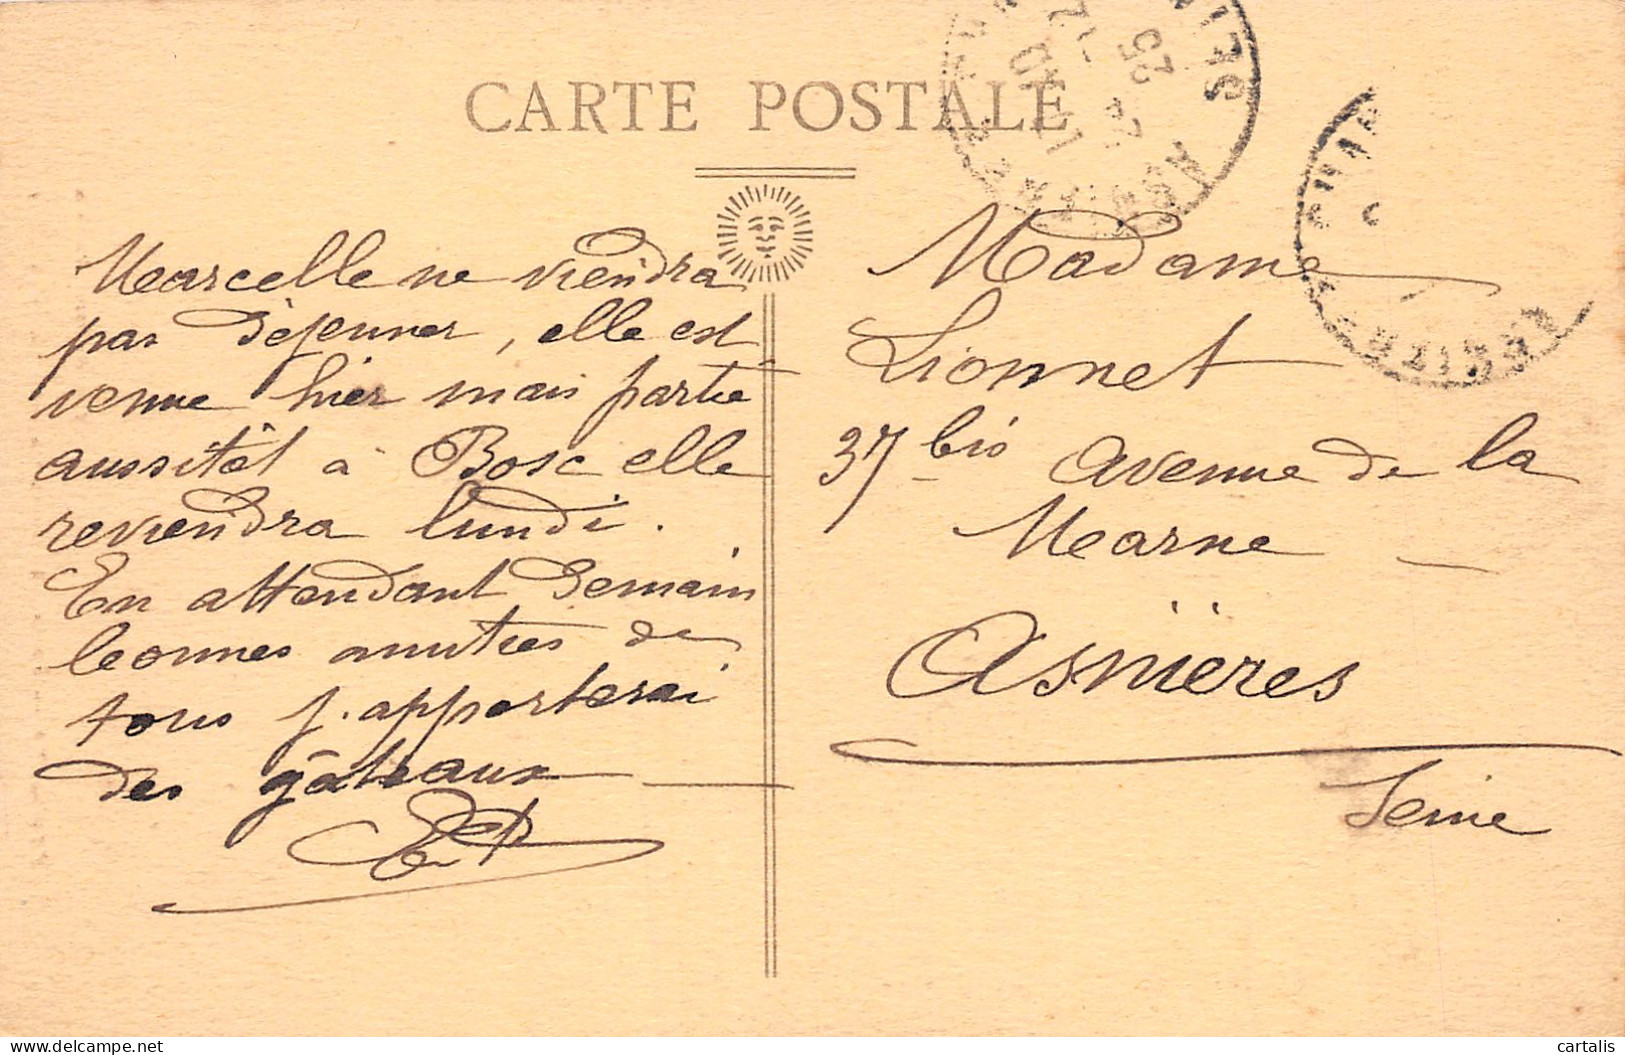 CARTE POSTALE
Marcelle ne viendra
pas déjeuner, elle est
venue hier mais partie
aussitôt à Bosc elle
reviendra lundi.
En attendant demain
bonnes amitiés de
tous j'apporterai
des gâteaux
Madame
Lionnet
37 bis Avenue de la
Marne
Asnières
Seine
cartalis